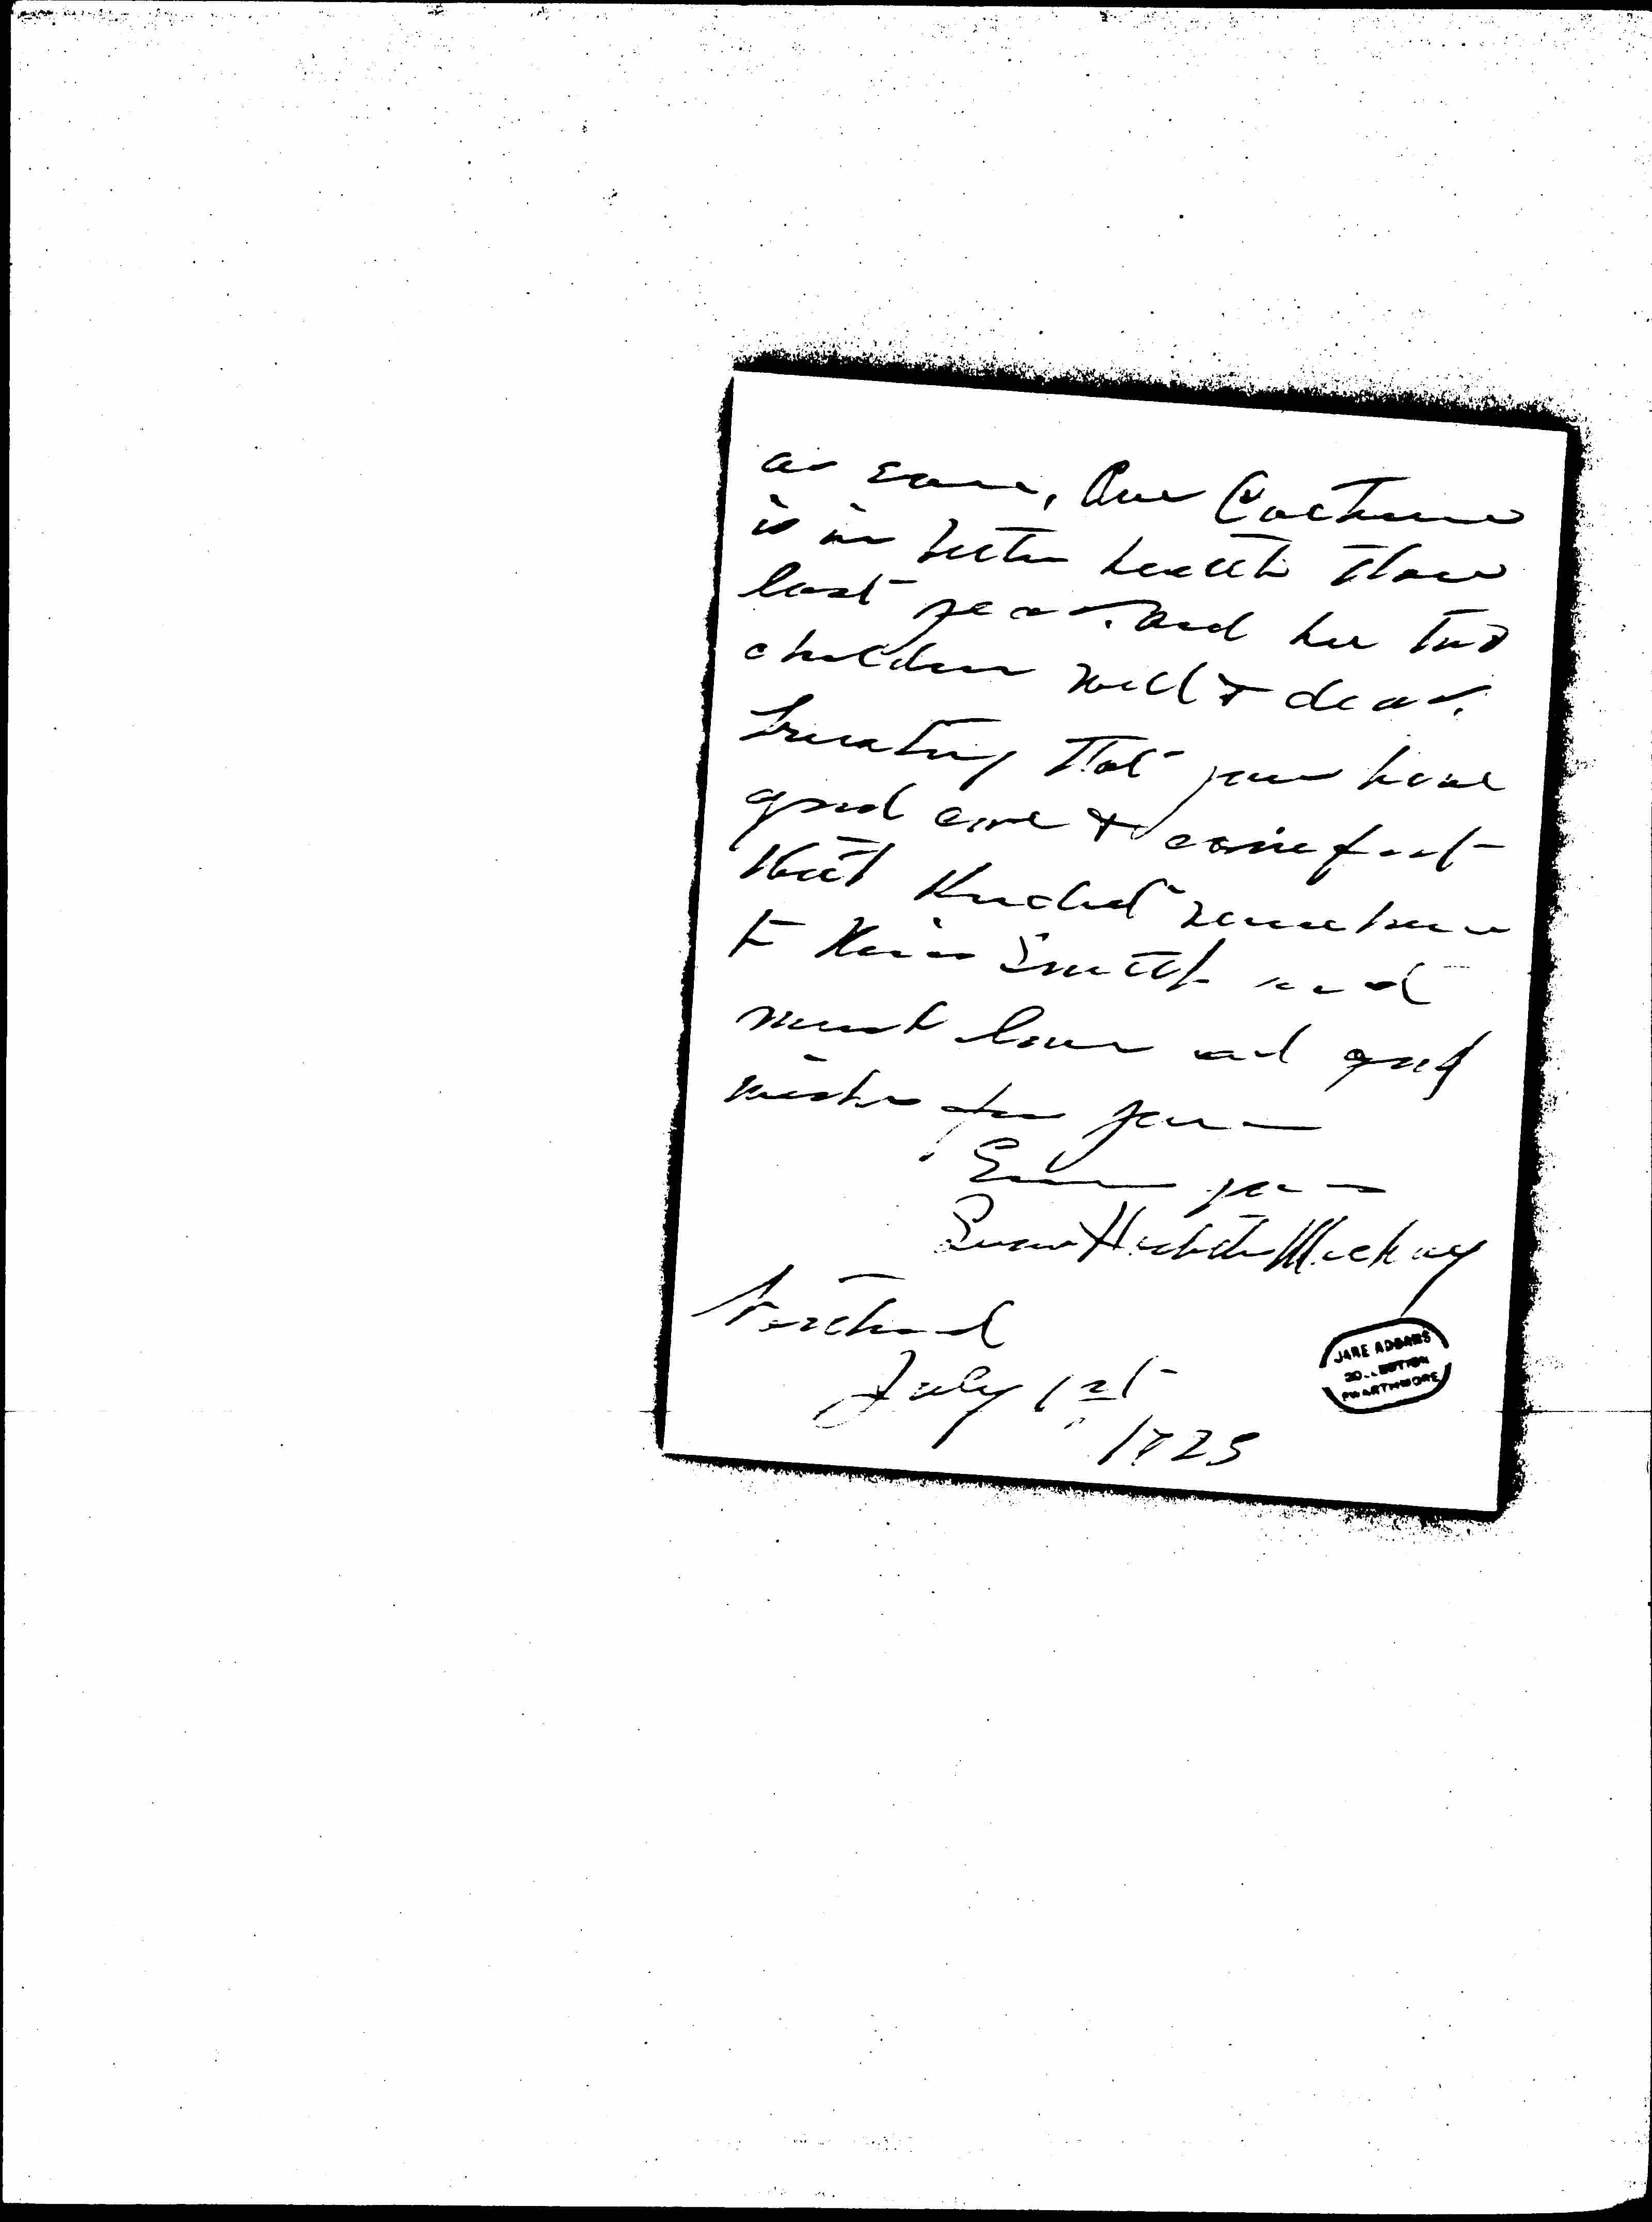 as ever, Our Catherine
is in better health than
last year. And her two
children well & dear.
Trusting that you have
good care & comfort
With kindest remembrance
to Miss Smith and
much love and good
wishes for you—
Ever yours
Mackay
July 1st
1923
JANE ADDAMS
SWARTHMORE